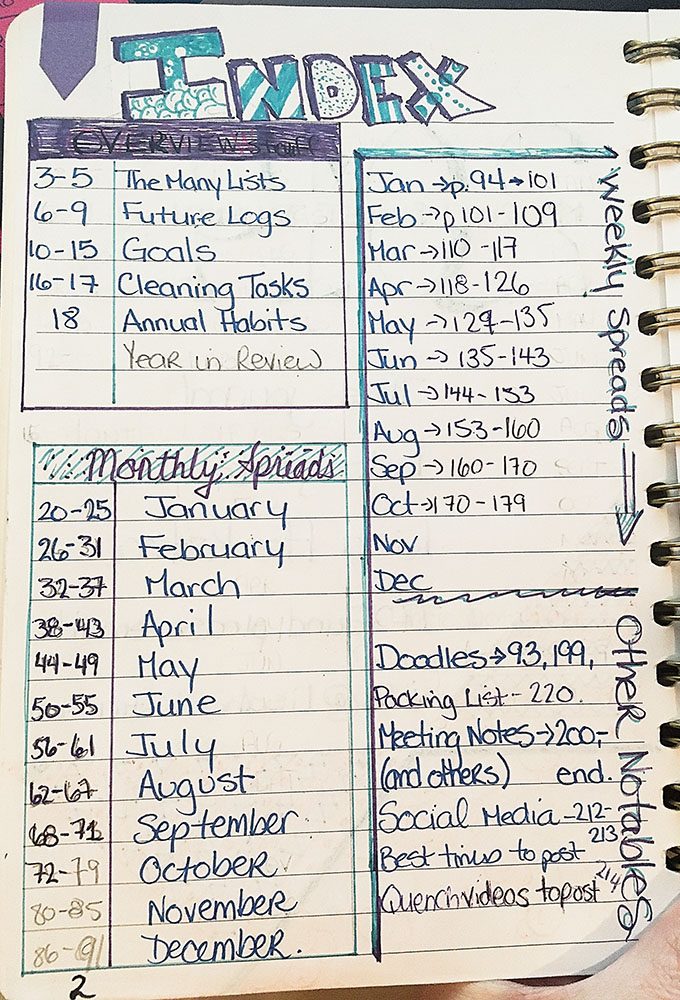 INDEX
OVERVIEW Stuff
3-5 The Many Lists
6-9 Future Logs
10-15 Goals
16-17 Cleaning Tasks
18 Annual Habits
Year in Review
Monthly Spreads
20-25 January
26-31 February
32-37 March
38-43 April
44-49 May
50-55 June
56-61 July
62-67 August
68-71 September
72-79 October
80-85 November
86-91 December.
2
Weekly Spreads
Jan → p. 94 → 101
Feb → p 101 - 109
Mar → 110 - 117
Apr → 118 - 126
May → 127 - 135
Jun → 135 - 143
Jul → 144 - 153
Aug → 153 - 160
Sep → 160 - 170
Oct → 170 - 179
Nov
Dec
Other Notables
Doodles → 93, 199,
Packing List - 220.
Meeting Notes → 200,-
(and others) end.
Social Media - 212-
Best times to post 213
Quench videos to post 214